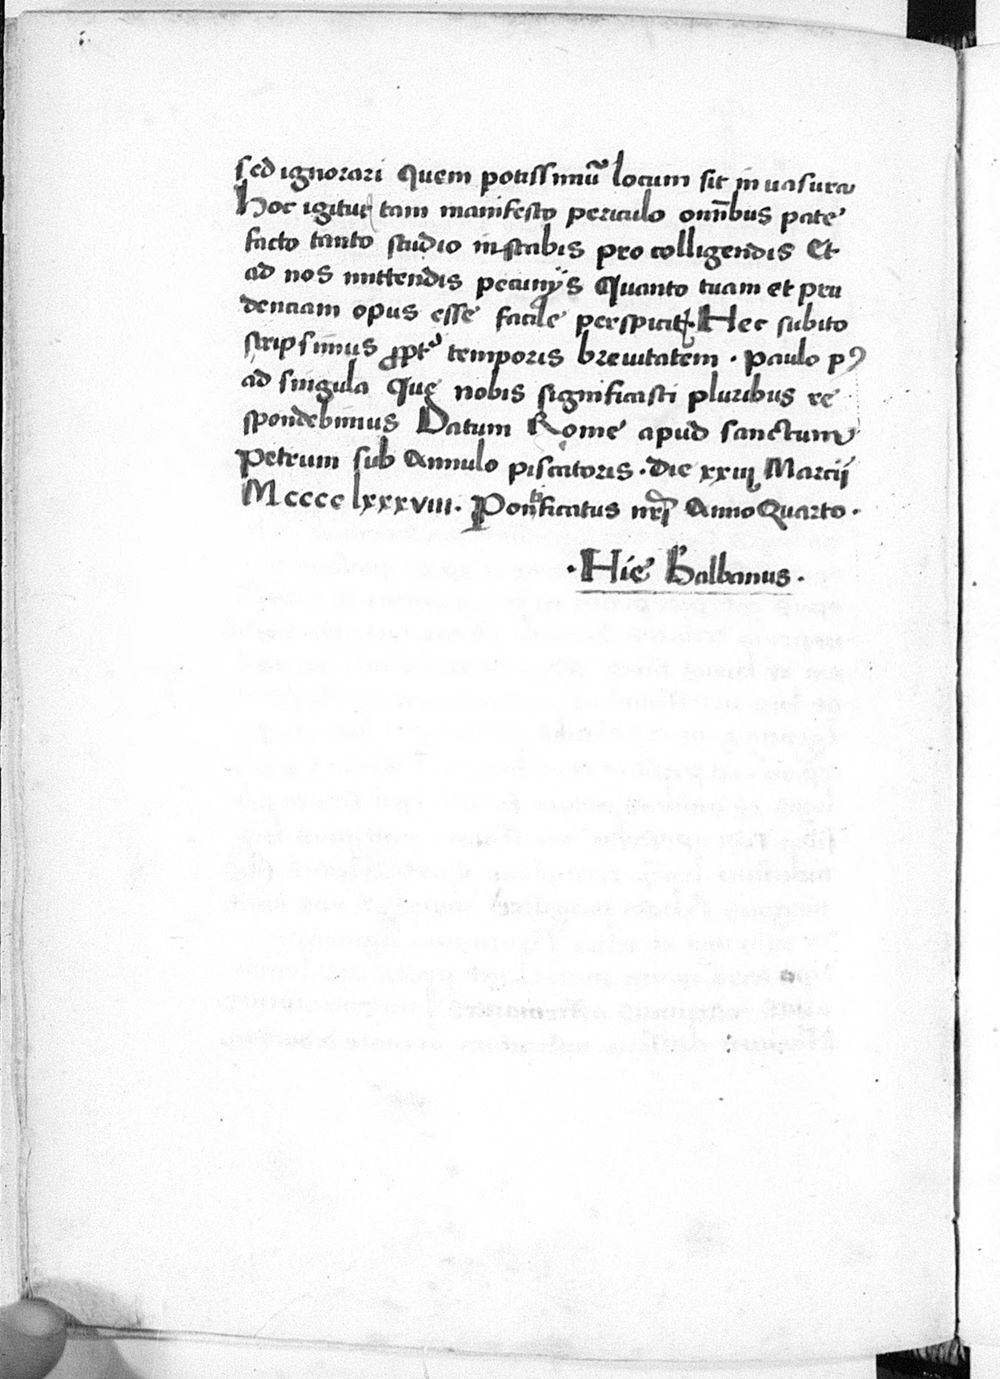 sed ignorari Quem potissimū locum sit inuasura
Hoc igitur tam manifesto periculo om̄ibus pate
facto tanto studio instabis pro colligendis Et
ad nos mittendis pecunijs Quanto tuam et pru
dentiam opus esse facile perspicit Hec subito
scripsimus ꝓpt' temporis breuitatem · Paulo pꝰ
ad singula Que nobis significasti pluribus re
spondebimus Datum Rome apud sanctum
Petrum sub Annulo piscatoris · Die xxiij Marcij
Mcccclxxxviii · Pontificatus nr̄i Anno Quarto ·
· Hie Balbanus ·